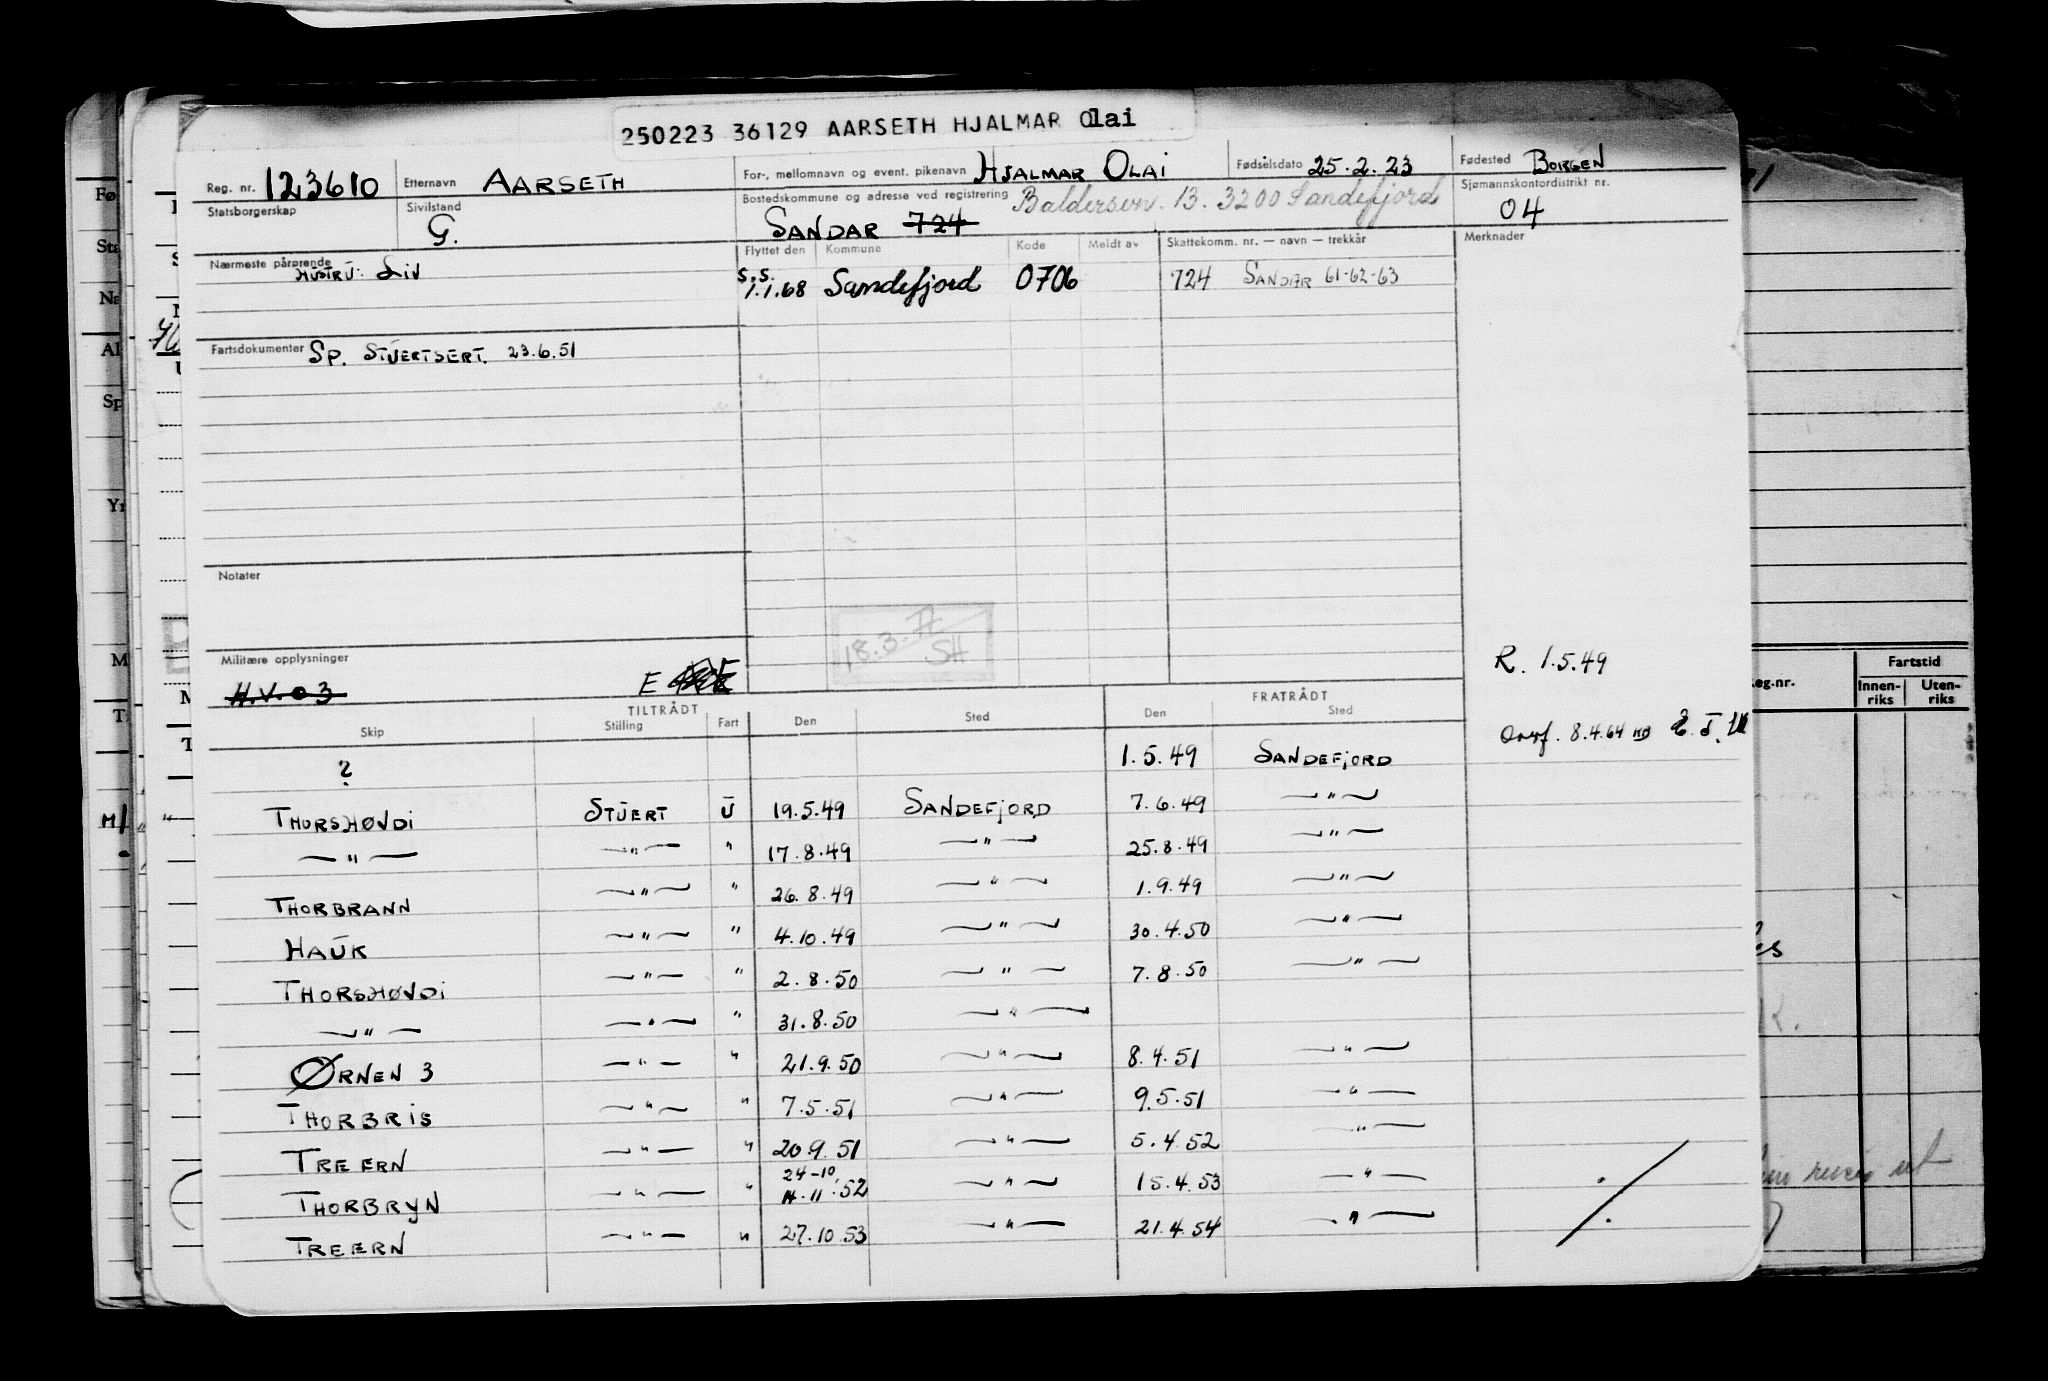 250223 36129 AARSETH HJALMAR Olai
Reg. nr. 123610 Etternavn AARSETH For-, mellomnavn og event. pikenavn HJALMAR OLAI Fødselsdato 25.2.23 Fødested BORGEN
Statsborgerskap Sivilstand G. Bostedskommune og adresse ved registrering Baldersvn. 13. 3200 Sandefjord Sjømannskontordistrikt nr. 04
SANDAR 724
Nærmeste pårørende HUSTRU: LIV Flyttet den Kommune Kode Meldt av Skattekomm. nr. — navn — trekkår Merknader
S.S. 1.1.68 Sandefjord 0706 724 SANDAR 61-62-63
Fartsdokumenter SP. STUERTSERT. 23.6.51
Notater
18.3.77 SH
Militære opplysninger
H.V. 03 E
R. 1.5.49
Overf. 8.4.64
TILTRÅDT FRATRÅDT
Skip Stilling Fart Den Sted Den Sted
? 1.5.49 SANDEFJORD
THORSHØVDI STUERT U 19.5.49 SANDEFJORD 7.6.49 —"—
—"— —"— " 17.8.49 —"— 25.8.49 —"—
THORBRANN —"— " 26.8.49 —"— 1.9.49 —"—
HAUK —"— " 4.10.49 —"— 30.4.50 —"—
THORSHØVDI —"— " 2.8.50 —"— 7.8.50 —"—
—"— —"— " 31.8.50 —"—
ØRNEN 3 —"— " 21.9.50 —"— 8.4.51 —"—
THORBRIS —"— " 7.5.51 —"— 9.5.51 —"—
TREERN —"— " 20.9.51 —"— 5.4.52 —"—
24-10
THORBRYN —"— " 14.11.52 —"— 15.4.53 —"—
TREERN —"— " 27.10.53 —"— 21.4.54 —"—
eg.nr. Fartstid
Innen-riks Uten-riks